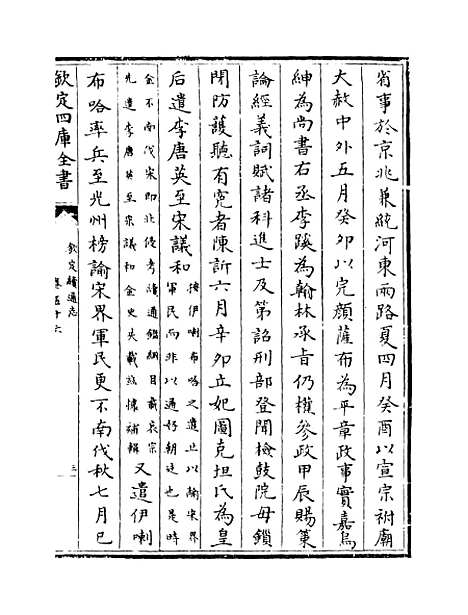 省事於京兆兼統河東兩路夏四月癸酉以宣宗祔廟
大赦中外五月癸卯以完顔薩布為平章政事實嘉烏
紳為尚書右丞李蹊為翰林承旨仍權參政甲辰賜策
論經義詞賦諸科進士及第詔刑部登聞檢鼓院毋鎖
閉防護聽有寃者陳訴六月辛卯立妃圖克坦氏為皇
后遣李唐英至宋議和
按伊喇布哈之遣止以諭宋界
軍民而非以通好朝廷也是時
金不南伐宋即北侵考續通鑑綱目載哀宗
先遣李唐英至宋議和金史失載兹懷補輯
又遣伊喇
布哈率兵至光州榜諭宋界軍民更不南伐秋七月己
欽定四庫全書
欽定續通志
卷五十六
三